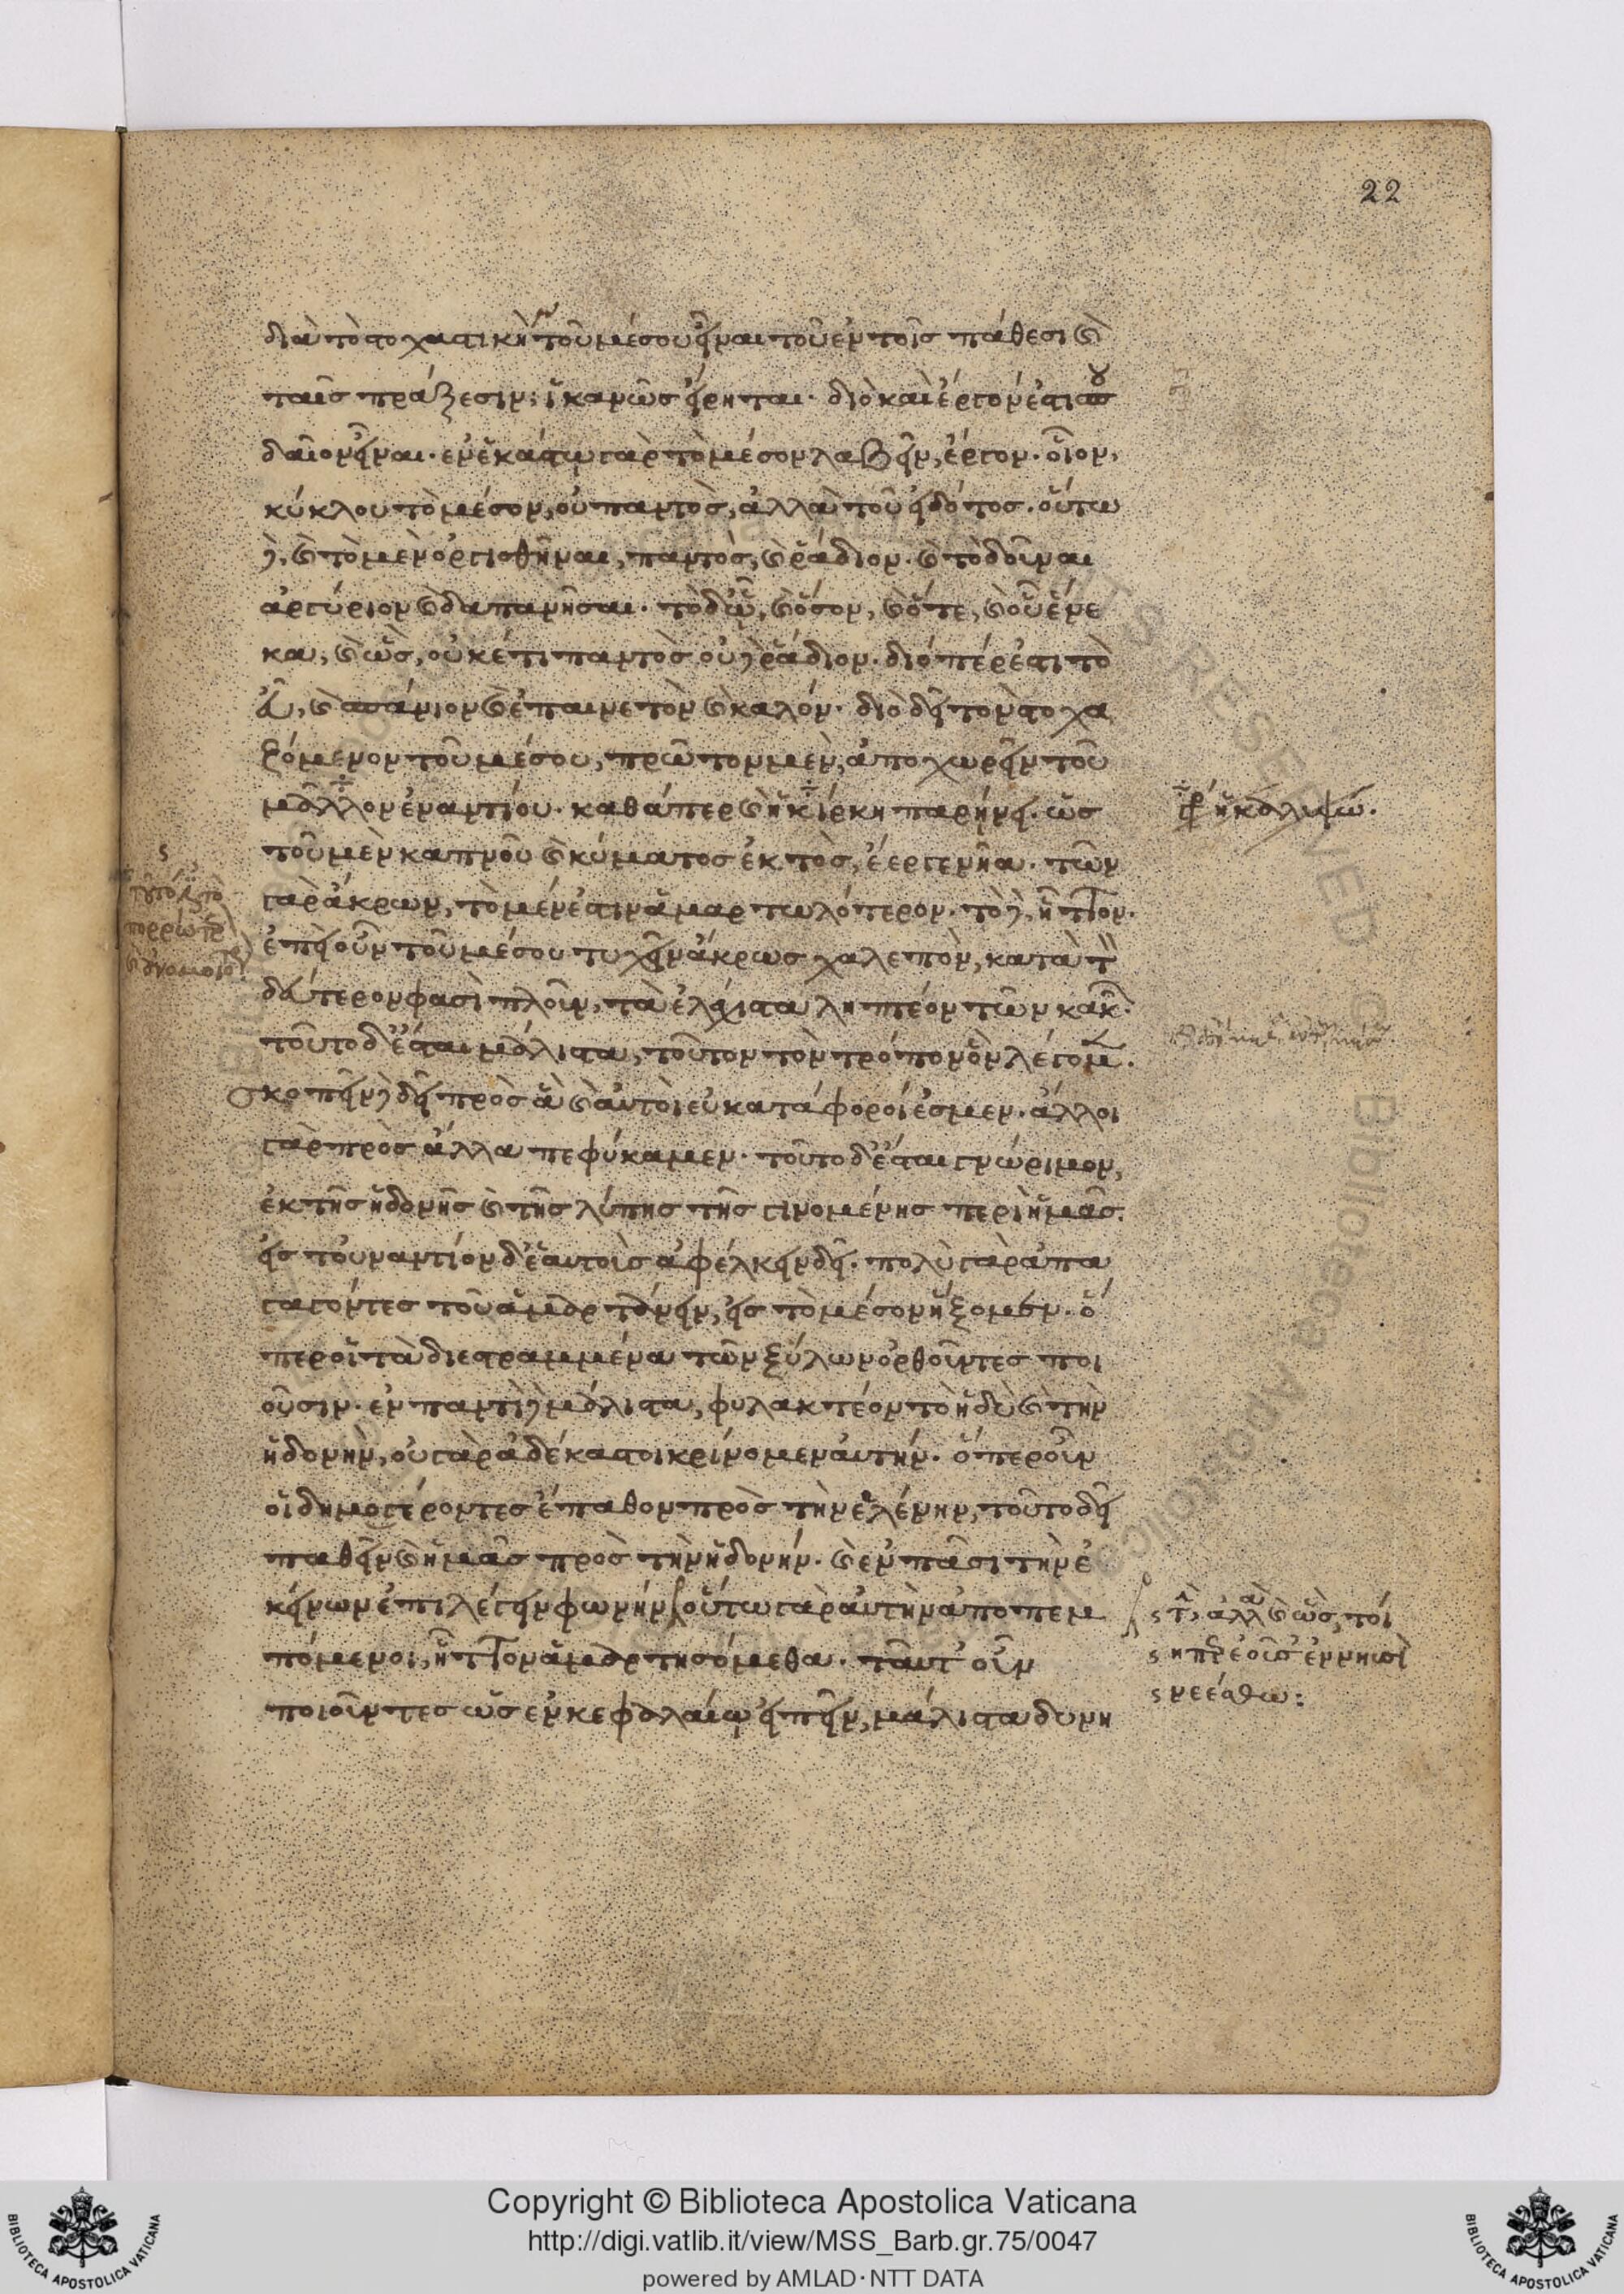 22
διὰ τὸ στοχαστικὴ τοῦ μέσου εἶναι τοῦ ἐν τοῖς πάθεσι καὶ
ταῖς πράξεσιν, ἱκανῶς εἴρηται. διὸ καὶ ἔργον ἐστὶ σπου
δαῖον εἶναι. ἐν ἑκάστω γὰρ τὸ μέσον λαβεῖν, ἔργον. οἷον,
κύκλου τὸ μέσον, οὐ παντὸς, ἀλλὰ τοῦ εἰδότος. οὕτω
δὲ, καὶ τὸ μὲν ὀργισθῆναι, παντὸς, καὶ ῥάδιον. καὶ τὸ δοῦναι
ἀργύριον καὶ δαπανῆσαι. τὸ δ' ᾧ, καὶ ὅσον, καὶ ὅτε, καὶ οὗ ἕνε
κα, καὶ ὥς, οὐκέτι παντὸς οὐδὲ ῥάδιον. διόπερ ἐστὶ τὸ
εὖ, καὶ σπάνιον καὶ ἐπαινετὸν καὶ καλόν. διὸ δεῖ τὸν στοχα
ζόμενον τοῦ μέσου, πρῶτον μὲν, ἀποχωρεῖν τοῦ
μᾶλλον ἐναντίου. καθάπερ καὶ ἡ κίρκη παρήνει. ὡς
ἡ καλυψώ.
τοῦ μὲν καπνοῦ καὶ κύματος ἐκτὸς, ἔεργε νῆα. τῶν
γὰρ ἄκρων, τὸ μέν ἐστιν ἁμαρτωλότερον. τὸ δὲ, ἧττον.
ἐπεὶ οὖν τοῦ μέσου τυχεῖν ἄκρως χαλεπὸν, κατὰ τὸν
δεύτερον φασὶ πλοῦν, τὰ ἐλάχιστα ληπτέον τῶν κακῶν.
τοῦτο δ' ἔσται μάλιστα, τοῦτον τὸν τρόπον ὃν λέγομεν.
σκοπεῖν δὲ δεῖ πρὸς ἃ καὶ αὐτοὶ εὐκατάφοροί ἐσμεν. ἄλλοι
γὰρ πρὸς ἄλλα πεφύκαμεν. τοῦτο δ' ἔσται γνώριμον,
ἐκ τῆς ἡδονῆς καὶ τῆς λύπης τῆς γινομένης περὶ ἡμᾶς.
εἰς τοὐναντίον δ' ἑαυτοὺς ἀφέλκειν δεῖ. πολὺ γὰρ ἀπα
γαγόντες τοῦ ἁμαρτάνειν, εἰς τὸ μέσον ἥξομεν. ὅ
περ οἱ τὰ διεστραμμένα τῶν ξύλων ὀρθοῦντες ποι
οῦσιν. ἐν παντὶ δὲ μάλιστα, φυλακτέον τὸ ἡδὺ καὶ τὴν
ἡδονὴν, οὐ γὰρ ἀδέκαστοι κρίνομεν αὐτήν. ὅπερ οὖν
οἱ δημογέροντες ἔπαθον πρὸς τὴν ἑλένην, τοῦτο δεῖ
παθεῖν καὶ ἡμᾶς πρὸς τὴν ἡδονήν. καὶ ἐν πᾶσι τὴν ἐ
κείνων ἐπιλέγειν φωνήν, οὕτω γὰρ αὐτὴν ἀποπεμ
ἀλλὰ καὶ ὣς, τοί
πόμενοι, ἧττον ἁμαρτησόμεθα. ταῦτ' οὖν
ἐν νηυσὶ
νεέσθω:
ποιοῦντες ὡς ἐν κεφαλαίω εἰπεῖν, μάλιστα δυνη
Copyright © Biblioteca Apostolica Vaticana
http://digi.vatlib.it/view/MSS_Barb.gr.75/0047
powered by AMLAD · NTT DATA
BIBLIOTECA APOSTOLICA VATICANA
BIBLIOTECA APOSTOLICA VATICANA